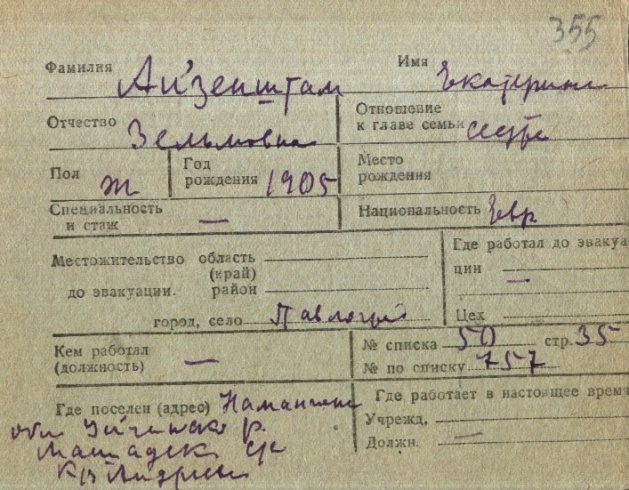 355
Фамилия Айзенштам Имя Екатерина
Отчество Зельмовна
Отношение
к главе семьи сестра
Пол ж
Год
рождения 1905
Место
рождения
Специальность
и стаж —
Национальность Евр
Местожительство область
(край)
до эвакуации. район
город, село Павлоград
Где работал до эвакуа
ции —
Цех
Кем работал
(должность) —
№ списка 50 стр. 35
№ по списку 757
Где поселен (адрес) Наманганс
обл р.
Где работает в настоящее время
Учрежд.
Должн. —